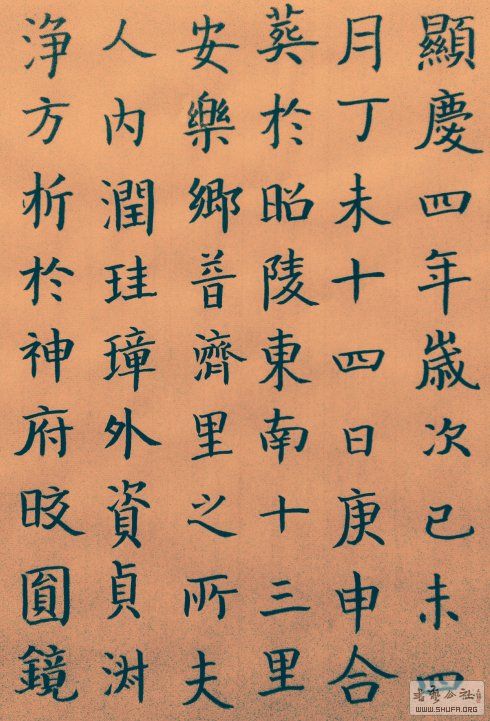 顯慶四年歲次己未四
月丁未十四日庚申合
葬於昭陵東南十三里
安樂鄉普濟里之所夫
人内潤珪璋外資貞淑
淨方析於神府晈圓鏡
WWW.SHUFA.ORG